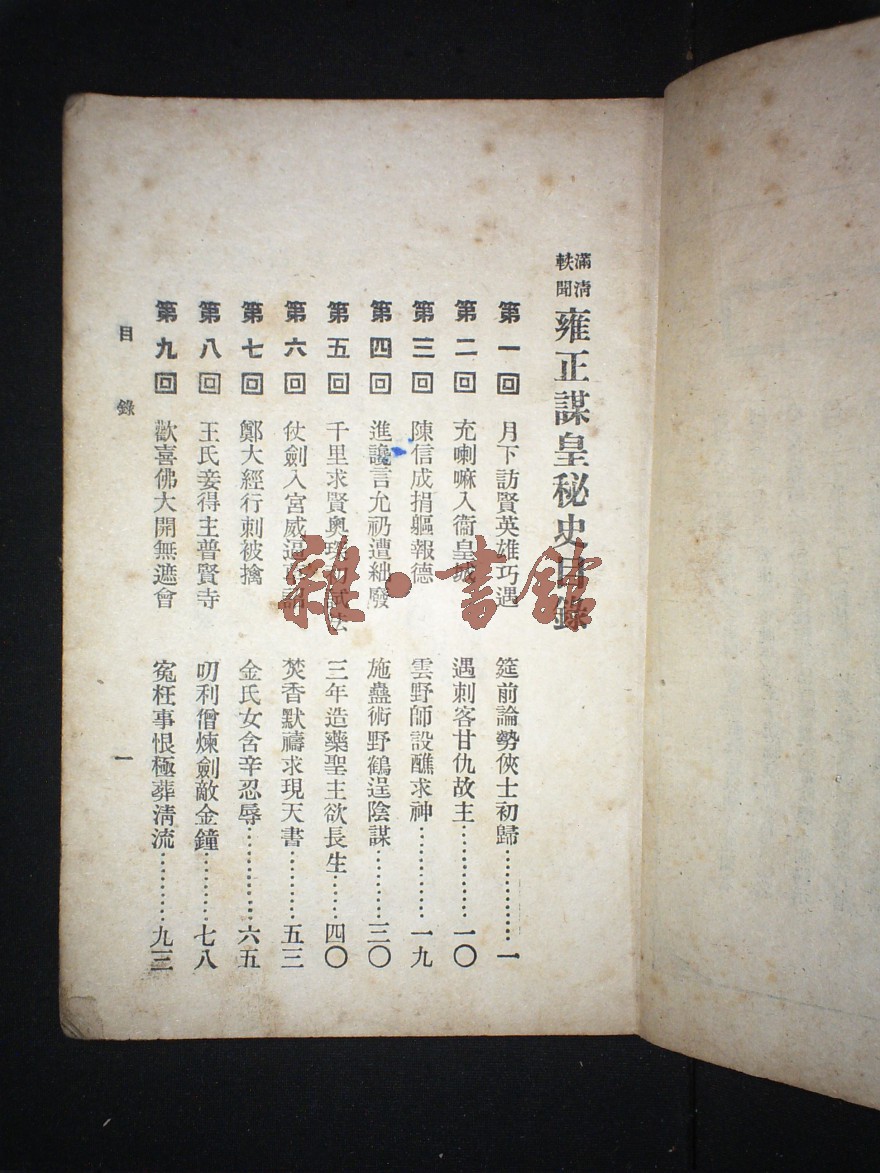 滿清
軼聞
雍正謀皇秘史目錄
第一回 月下訪賢英雄巧遇 筵前論勢俠士初歸…………一
第二回 充喇嘛入衞皇城 遇刺客甘仇故主…………一〇
第三回 陳信成捐軀報德 雲野師設醮求神…………一九
第四回 進讒言允礽遭絀廢 施蠱術野鶴逞陰謀…………三〇
第五回 千里求賢奧 試法 三年造藥聖主欲長生……四〇
第六回 仗劍入宮威逼 詔 焚香默禱求現天書………五三
第七回 鄭大經行刺被擒 金氏女含辛忍辱…………六五
第八回 王氏妾得主普賢寺 叨利僧煉劍敵金鐘………七八
第九回 歡喜佛大開無遮會 冤枉事恨極葬清流………九三
目錄
一
雜·書館